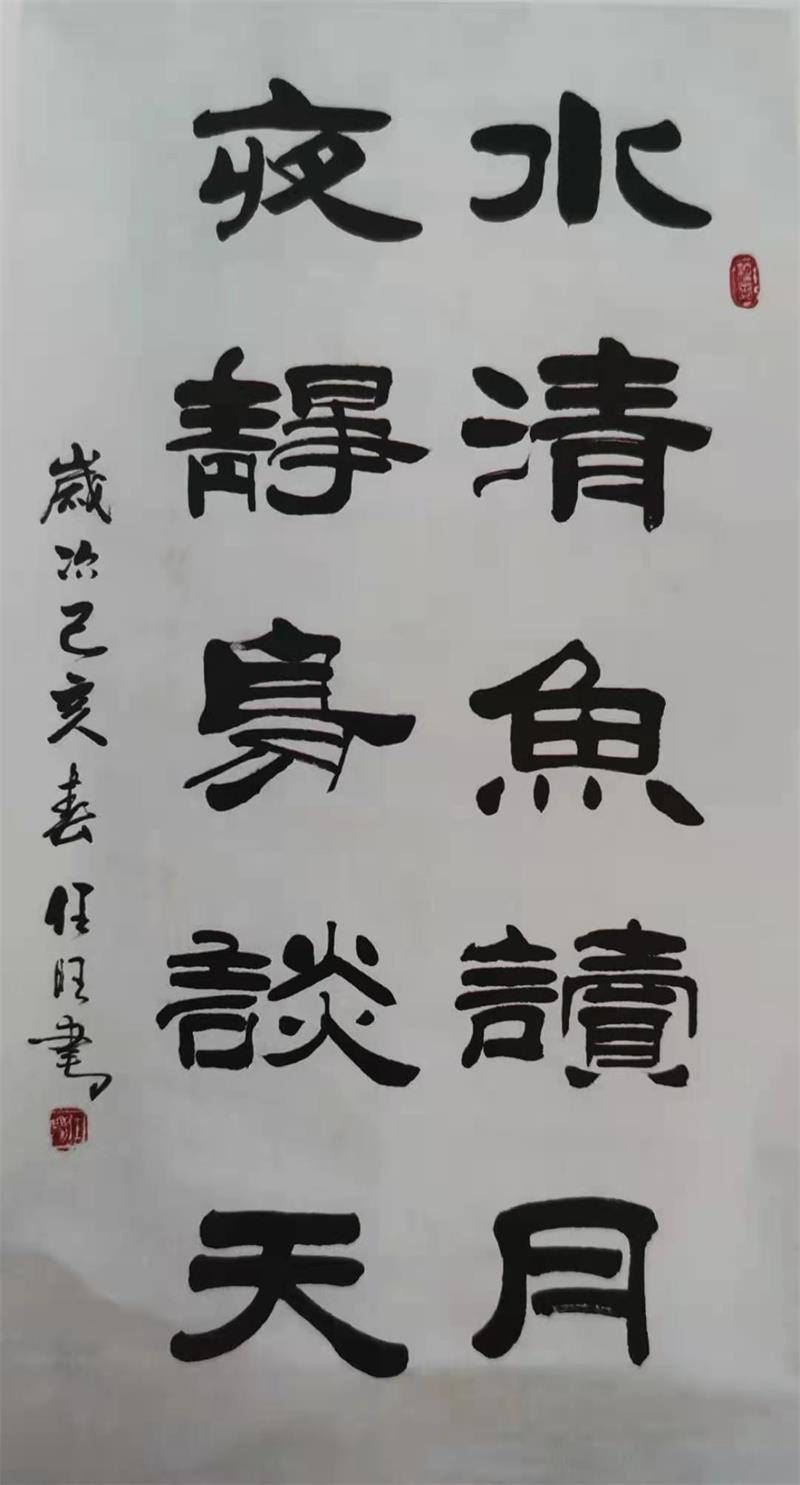 水清魚讀月
夜靜鳥談天
歲次己亥春任旺書